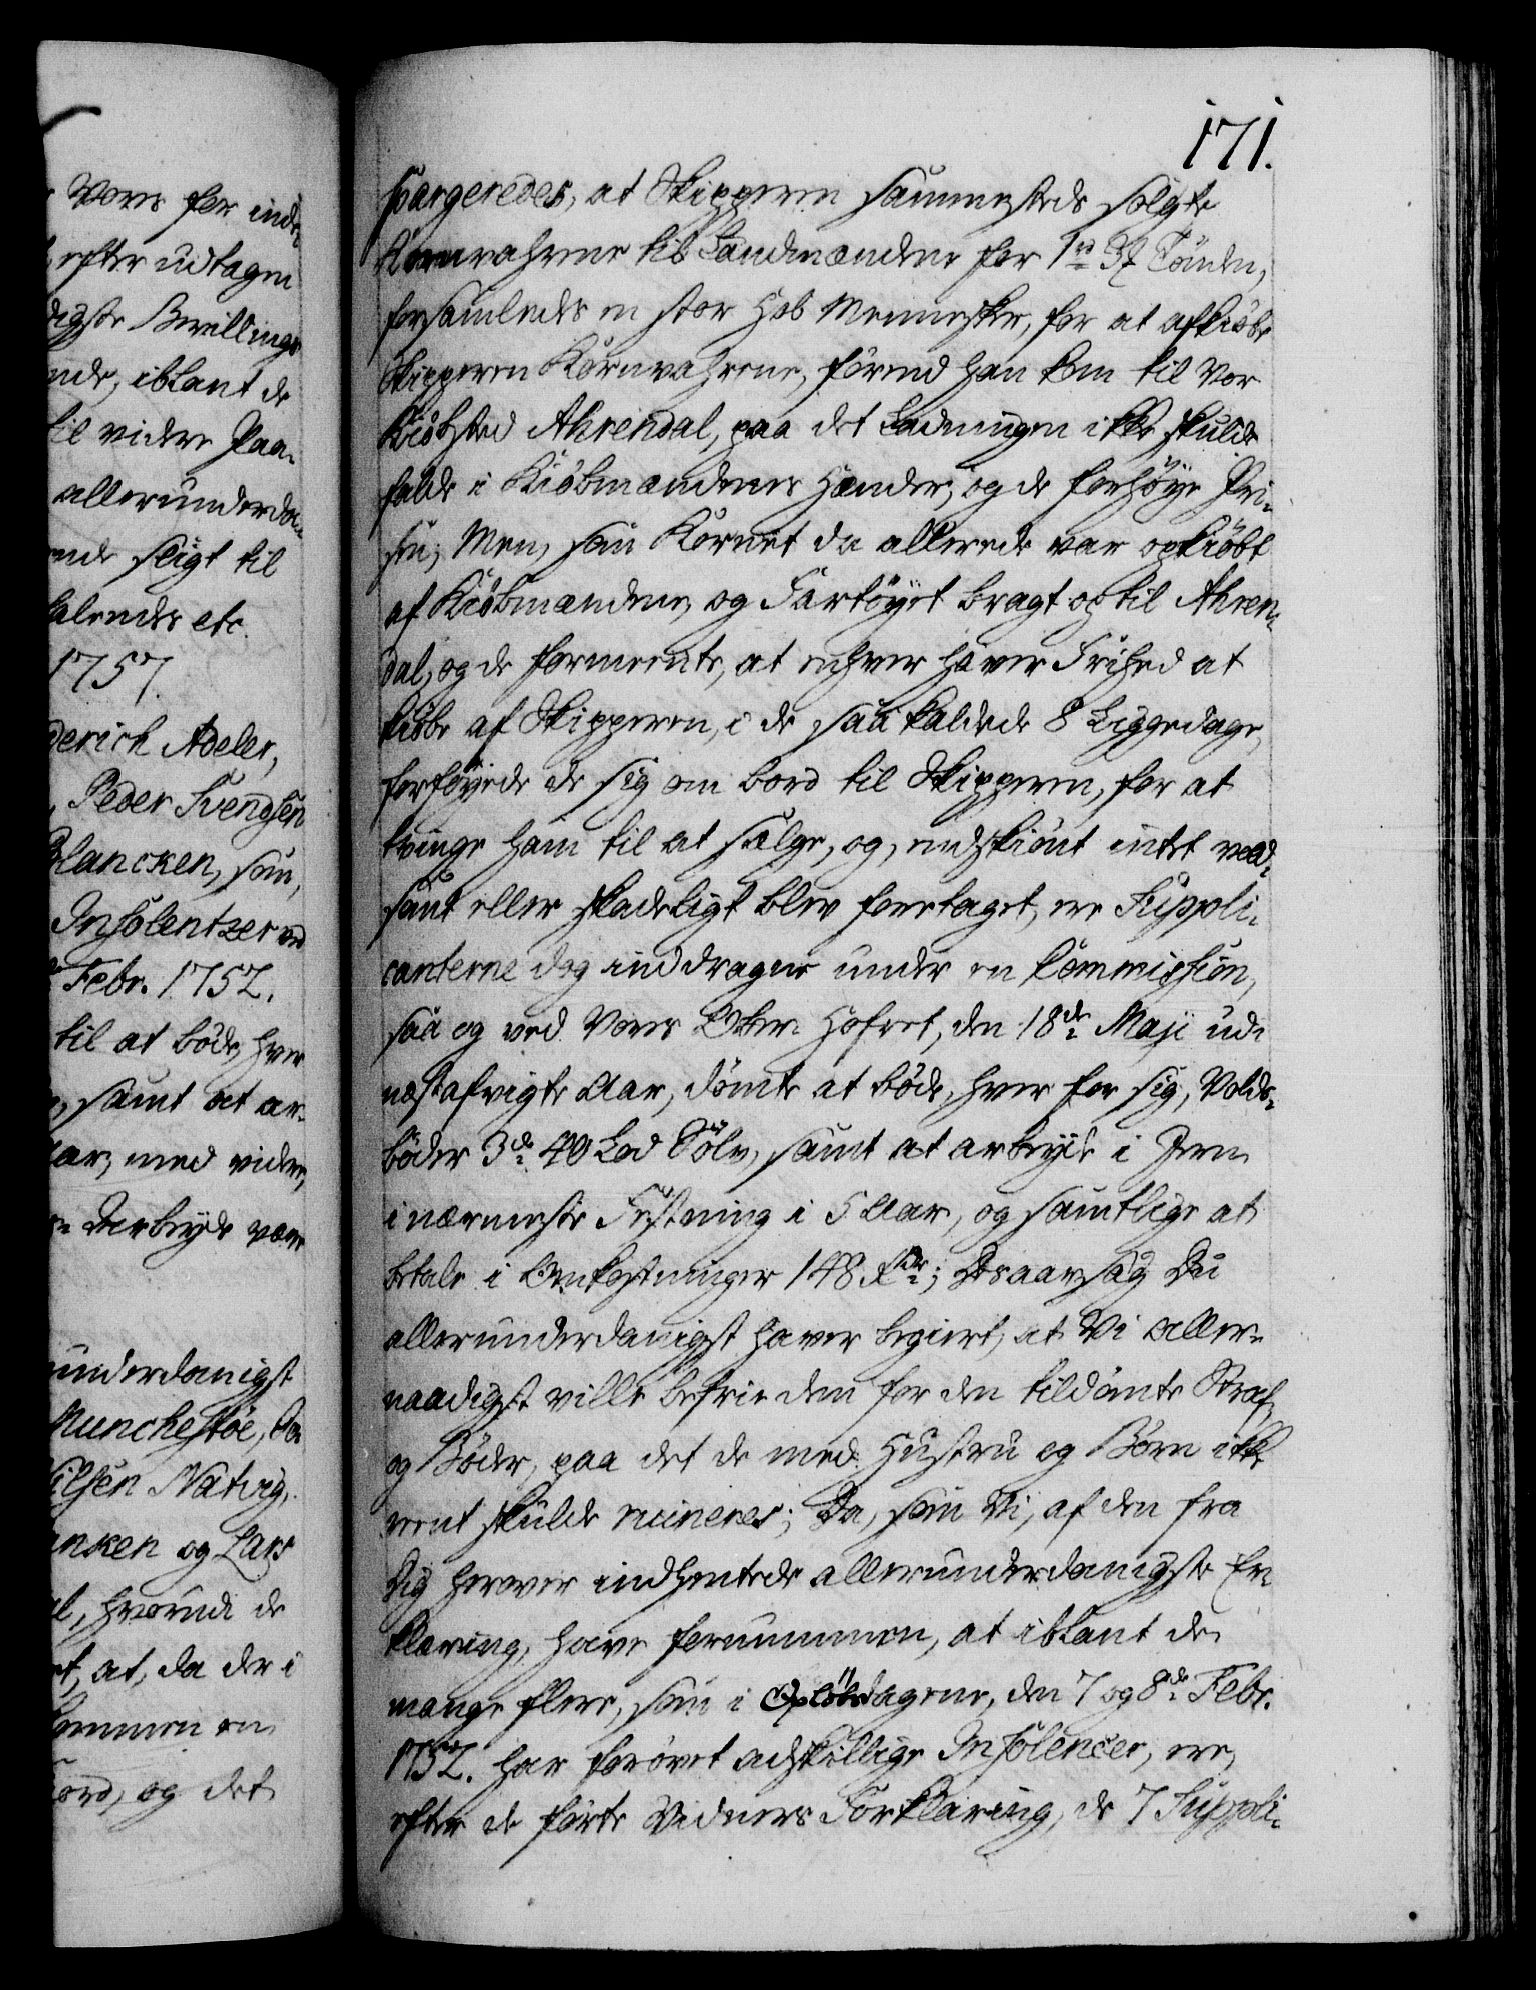 Vores for inde
efter udtagen
digste Bevillings
nde, iblant de
til videre Paa-
allerunderda-
ende sligt til
talendes etc.
1757.
derich Adeler,
Peder Svendsen
Blancken, som,
Insolentzer ved
Febr. 1752.
til at bøde, hver
samt at ar-
Aar, med videre,
Arbeyde være
underdanigst
Munchestøe,
Nilsen Natvig,
ancken og Lars
hvorudi de
at, da der i
kommen en
fiord, og det
171.
spargeredes, at Skipperen sammesteds solgte
Kornvahrene til Landmændene for 1 rd 3 # Tønden,
forsamledes en stor Hob Mennesker, for at afkiøbe
Skipperen Kornvahrene, førend han kom til Vor
Kiøbsted Ahrendal, paa det Ladningen ikke skulde
falde i Kiøbmændenes Hænder, og de forhøye Pri-
sen; Men, som Kornet da allerede var opkiøbt
af Kiøbmændene, og Fartøyet bragt op til Ahren-
dal, og de formeente, at enhver haver Frihed at
kiøbe af Skipperen, i de saa kaldede 8 Liggedage,
forføyede de sig om bord til Skipperen, for at
tvinge ham til at sælge, og, endskiønt intet vold-
somt eller skadeligt blev foretaget, ere Suppli-
canterne dog inddragne under en Commission,
saa og ved Vores Ober-Hofret, den 18de Maji udi
næstafvigte Aar, dømte at bøde, hver for sig, Volds-
bøder 3de 40 Lod Sølv, samt at arbeyde i Jern
i nærmeste Festning i 5 Aar, og samtlige at
betale i Omkostninger 148 Rdr; Desaarsag Du
allerunderdanigst haver begiert, at Vi aller-
naadigst ville befrie dem for den tildømte Straf,
og Bøder, paa det de med Hustru og Børn ikke
reent skulde ruineres; Da, som Vi, af den fra
Dig herover indhentede allerunderdanigste Er-
klæring, have fornummen, at iblant de
mange flere, som i Opløbsdagene, den 7 og 8de Febr.
1752. har forøvet adskillige Insolencer, ere,
efter de førte Vidners Forklaring, de 7 Suppli-